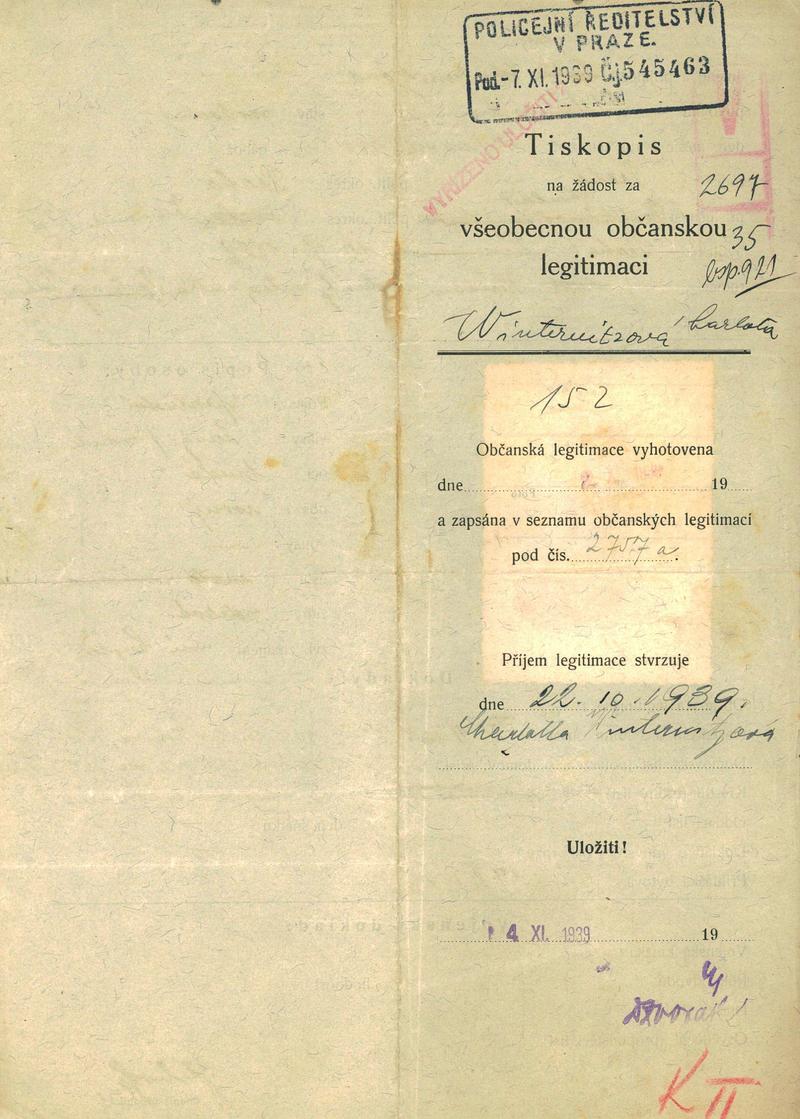 POLICEJNÍ ŘEDITELSTVÍ
V PRAZE.
Pod.-7. XI. 1939 Čj. 545463
VYŘÍZENO ULOŽITI!
Tiskopis
na žádost za
2697
všeobecnou občanskou
35
legitimaci
Winternitzová Carlota
152
Občanská legitimace vyhotovena
dne 19
a zapsána v seznamu občanských legitimací
pod čís. 2757 a.
Příjem legitimace stvrzuje
dne 22. 10. 1939.
Charlotta Winternitzová
Uložiti!
4 XI. 1939 19
Dvořák
K II